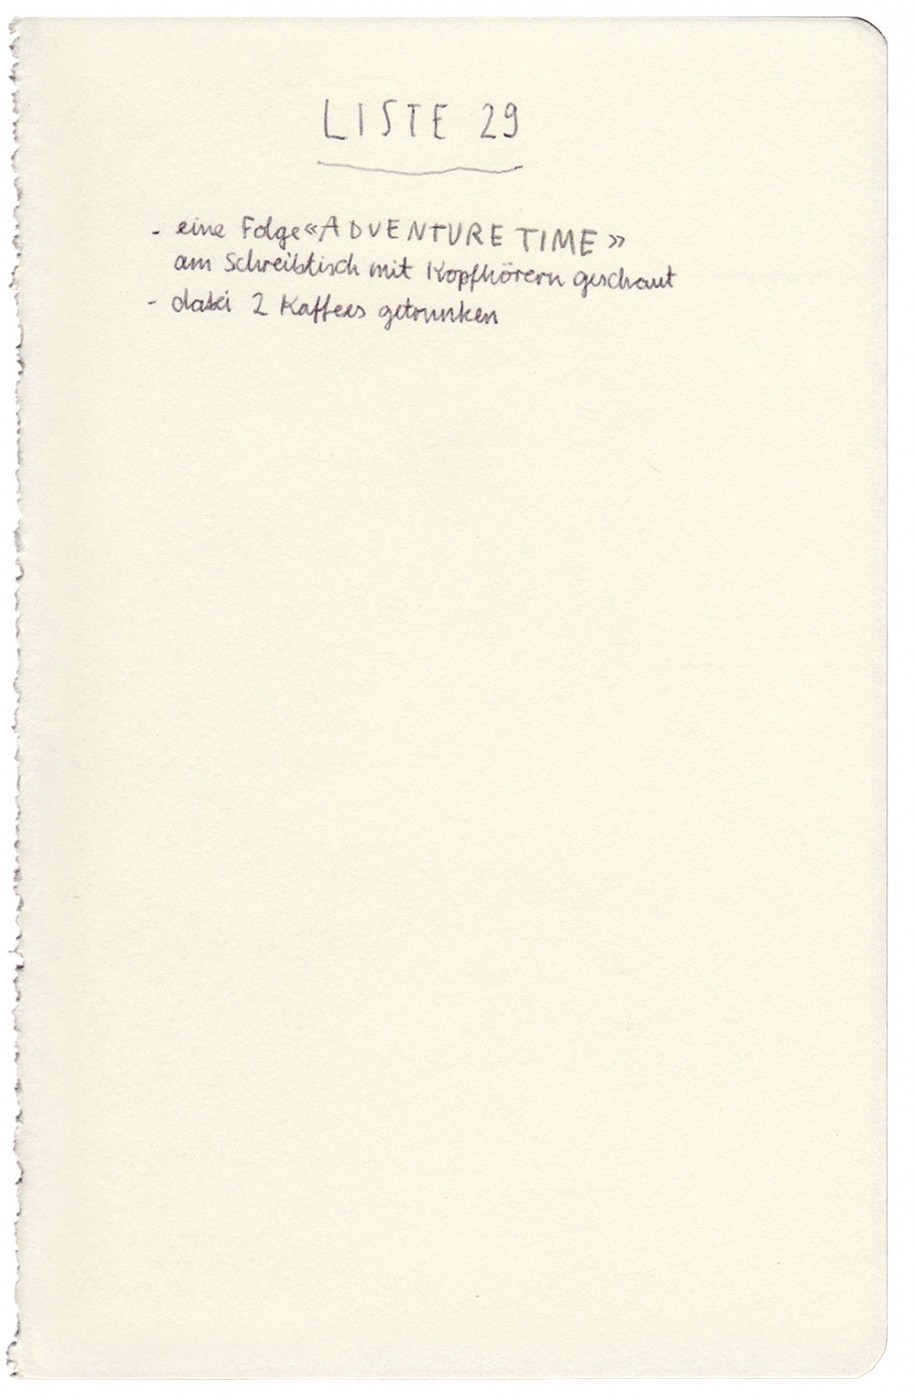 LISTE 29
- eine Folge «ADVENTURE TIME»
am Schreibtisch mit Kopfhörern geschaut
- dabei 2 Kaffees getrunken